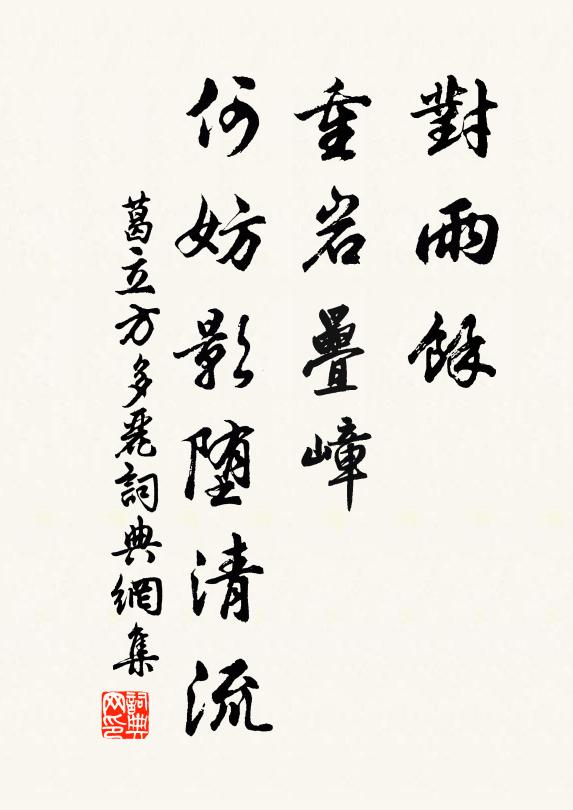 對雨餘
重岩疊嶂
何妨影堕清流
葛立方多麗詞典網集
詞典网印